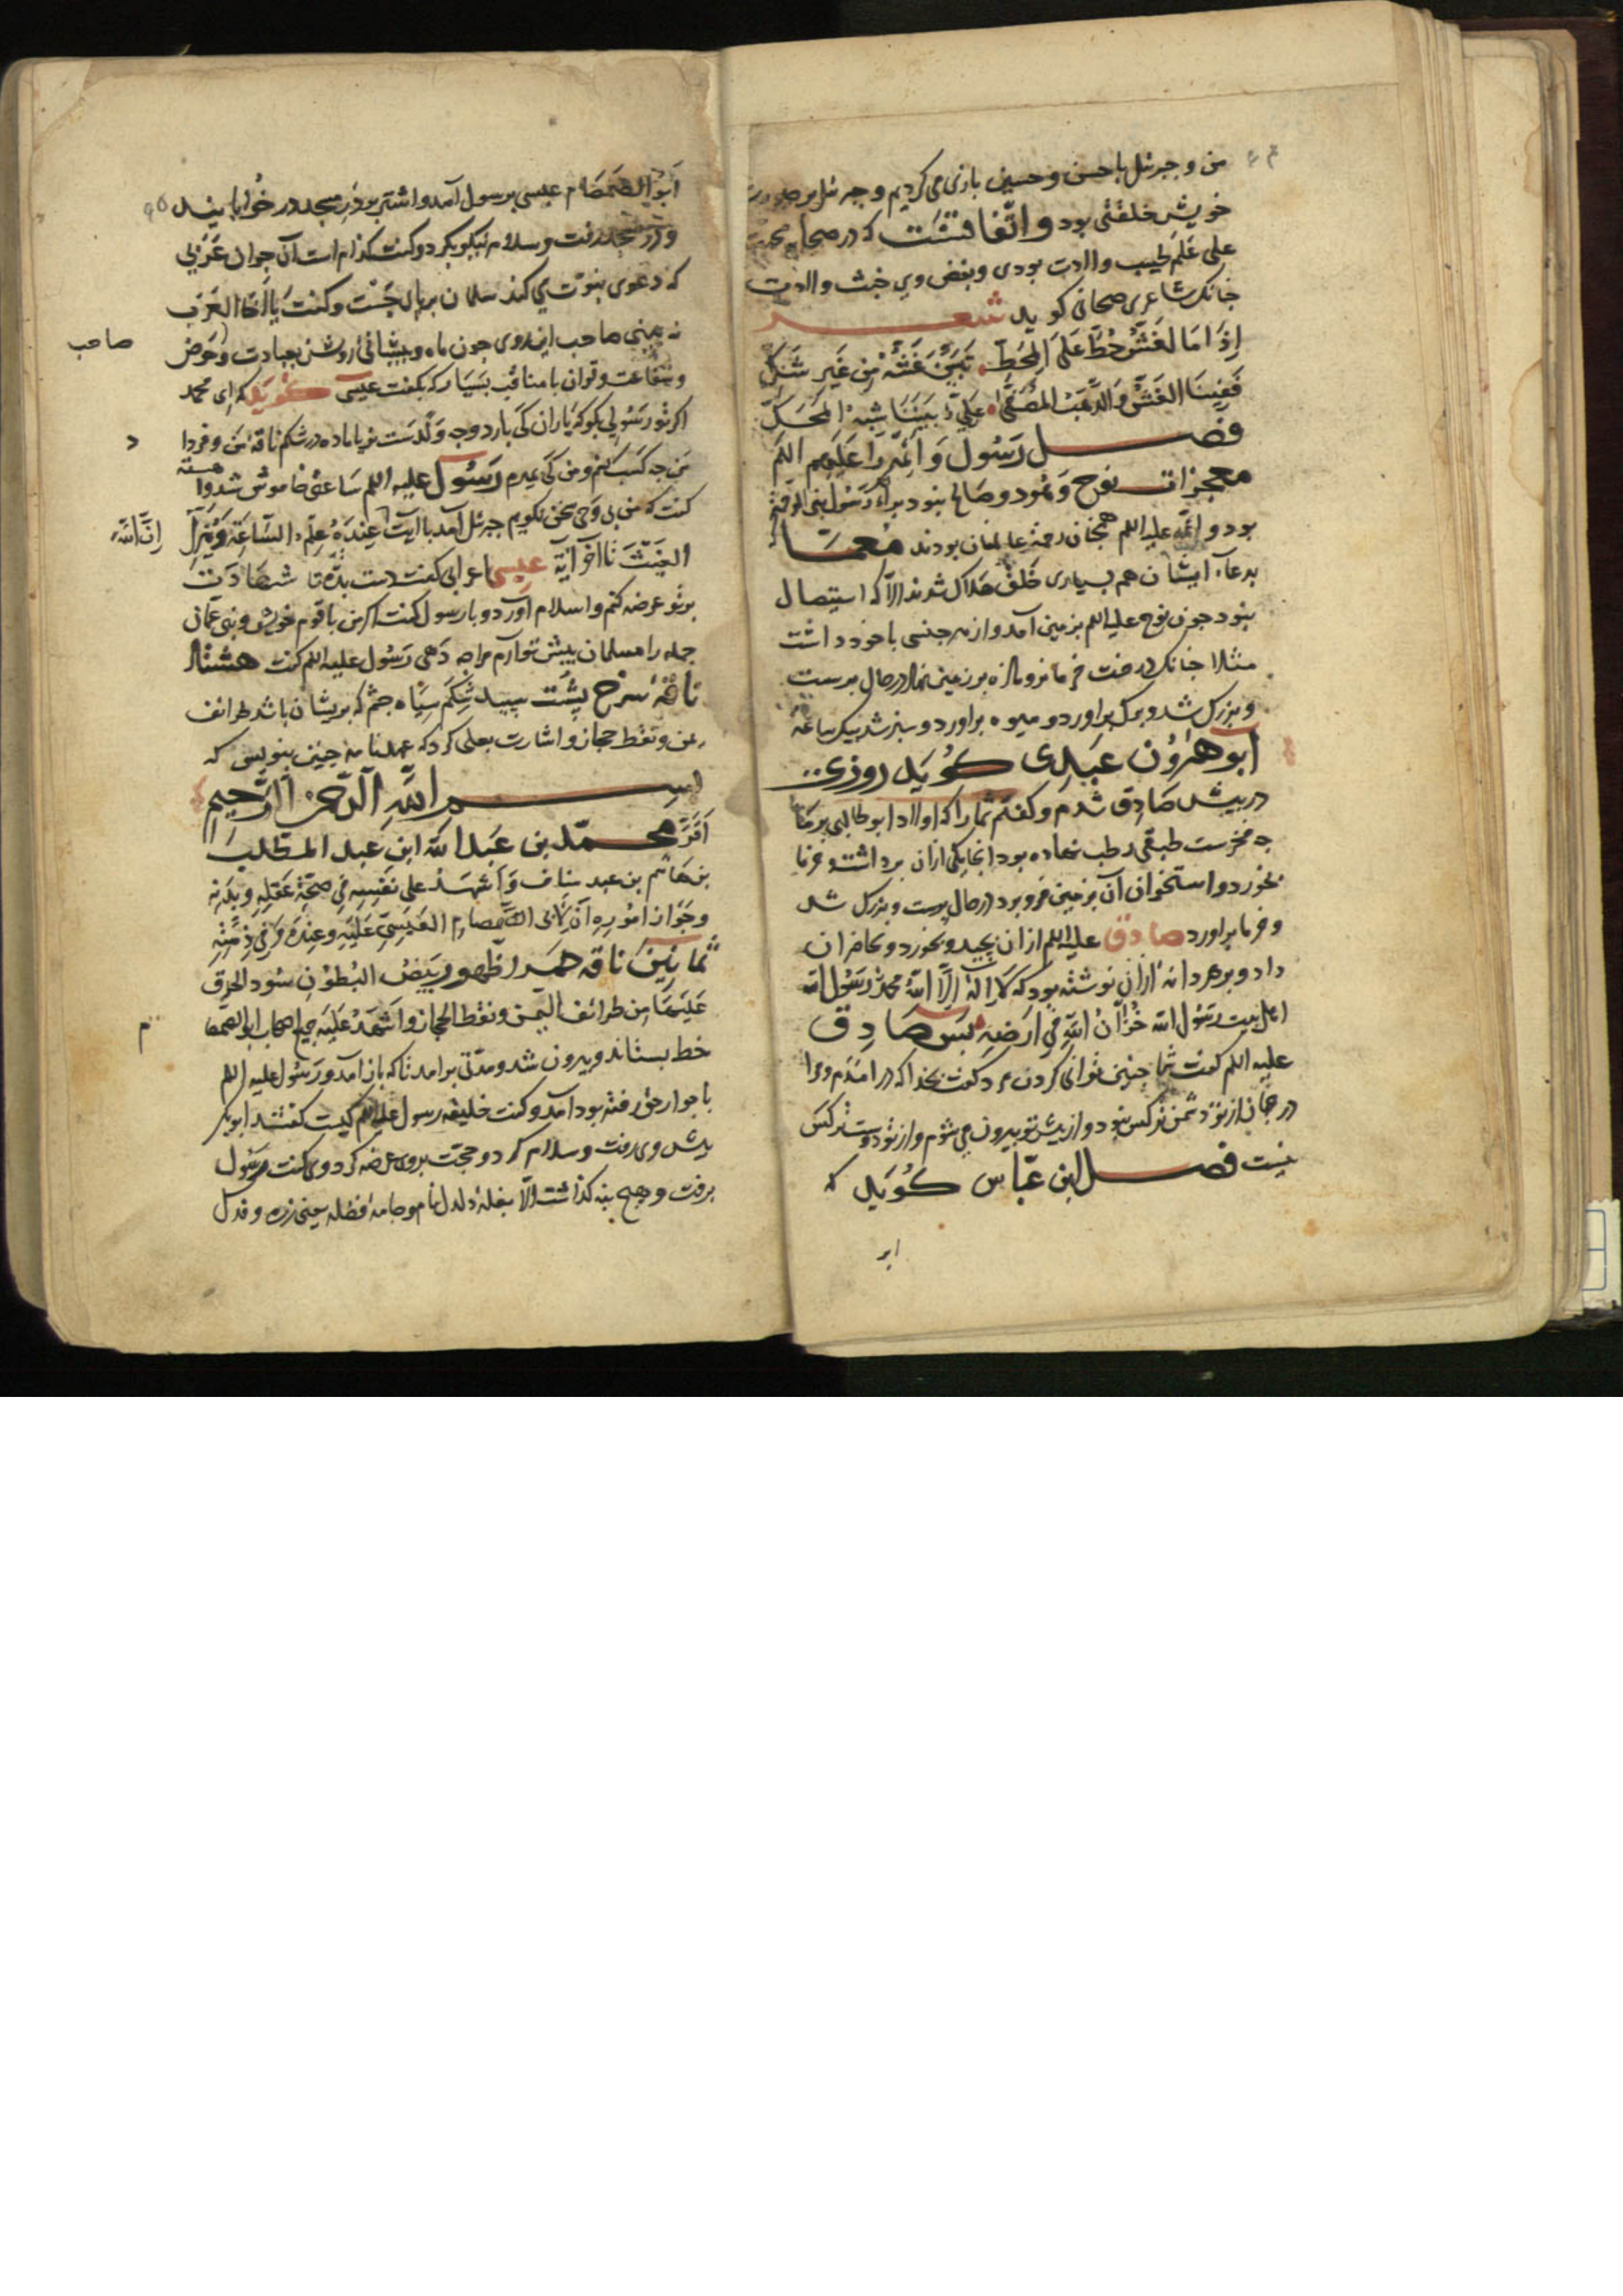 من و جبرئل با حسن و حسین بازی می کردیم و جبرئل بر صورت
خویش خلقتی بود و اتفاقتست که در صحابه محبت
علی علم طیب ولادت بودی و بغض وی خبث ولادت
جنانک شاعری صحابی کوید شعر
إذا ما الغش حط علی المحط تبین غشه من غیر شک
ففینا الغش والذهب المصفی علي بیننا شبه المحک
فصل رسول و ائمه را علیهم اللم
معجزات نوح و هود و صالح بنود براء رسول بنی الرحمة
بود و ائمه علیه اللم همجنان رحمة عالمیان بودند معما
بدعاء ایشان هم بسیاری خلق هلاک شدند الا که استیصال
بنود جون نوح علیه اللم بزمین آمد و از هر جنسی با خود داشت
مثلا جنانک درخت خرما نرو ماده بر زمین نهاد در حال برست
و بزرک شد و برک براورد و میوه براورد و سبز شد بیک ساعة
ابو هرون عبدی کوید روزی
در بیش صادق شدم و کفتم شما را که اولاد ابو طالبی بر ما
جه فخرست طبقی رطب نهاده بود انجا یکی ازان برداشت و خرما
بخورد و استخوان آن بزمین فرو برد در حال برست و بزرک شد
و خرما براورد صادق علیه اللم ازان بجید و بخورد و بحاضران
داد و بر هر دانه ازان نوشته بود که لا اله الا الله محمد رسول الله
اهل بیت رسول الله خزان الله فی ارضه بس صادق
علیه اللم کفت شما جنین توانی کردن مرد کفت بخدا که در امدم و مرا
در جهان از تو دشمن تر کس نبود و از بیش تو بیرون می شوم و از تو دوست تر کس
نیست فصل ابن عباس کوید که
ابو
ابو الصمصام عبسی برسول آمد و اشتر بر در مسجد در خوابانید
و در مسجد رفت و سلام نیکو بکرد و کفت کدام است آن جوان عربی
که دعوی بنوت می کند سلمان بر بای جست و کفت یا اخا العرب
نه بینی صاحب این روی جون ماه و بیشانی روشن بعبادت و حوض
صاحب
و شفاعت و قران با مناقب بسیار که بکفت عبسی کوید که ای محمد
اکر تو رسولی بکو که باران کی بارد و جه ولدست نر یا ماده در شکم ناقه من و فردا
من جه کسب کنم و من کی میرم رسول علیه اللم ساعتی خاموش شد و
کفت که من بی وحی سخن نکویم جبرئل آمد با آیت عنده علم الساعة وینزل
ان الله
الغیث تا آخر آیة عبسی اعرابی کفت دست بده تا شهادت
بر تو عرضه کنم و اسلام آورد و با رسول کفت اکر من با قوم خویش و بنی عمان
جمله را مسلمان بیش تو آرم مرا جه دهی رسول علیه اللم کفت هشتاد
ناقه سرخ پشت سبید شکم سیاه جشم که بریشان باشد طرائف
یمن و نقط حجاز و اشارت بعلی کرد که عهدنامه جنین بنویس که
بسم الله الرحمن الرحیم
اقر محمد بن عبد الله ابن عبد المطلب
بن هاشم بن عبد مناف و اشهد علی نفسه فی صحة عقله و بدنه
و جواز اموره ان لابی الصمصام العبسی علیه و عنده و فی ذمته
ثمانین ناقه حمر الظهور بیض البطون سود الحدق
علیها من طرائف الیمن و نقط الحجاز و اشهد علیه جمیع اصحابه ابو الصمصا
م
خط بستاند و بیرون شد و مدتی برامد تا که باز آمد و رسول علیه اللم
با جوار حق رفته بود آمد و کفت خلیفه رسول علیه اللم کیست کفتند ابو بکر
بیش وی رفت و سلام کرد و حجت بروی عرضه کرد وی کفت رسول
برفت و هیج بنه کذاشت الا بغلة دلدل نام و جامه افضله یعنی زره و فدک